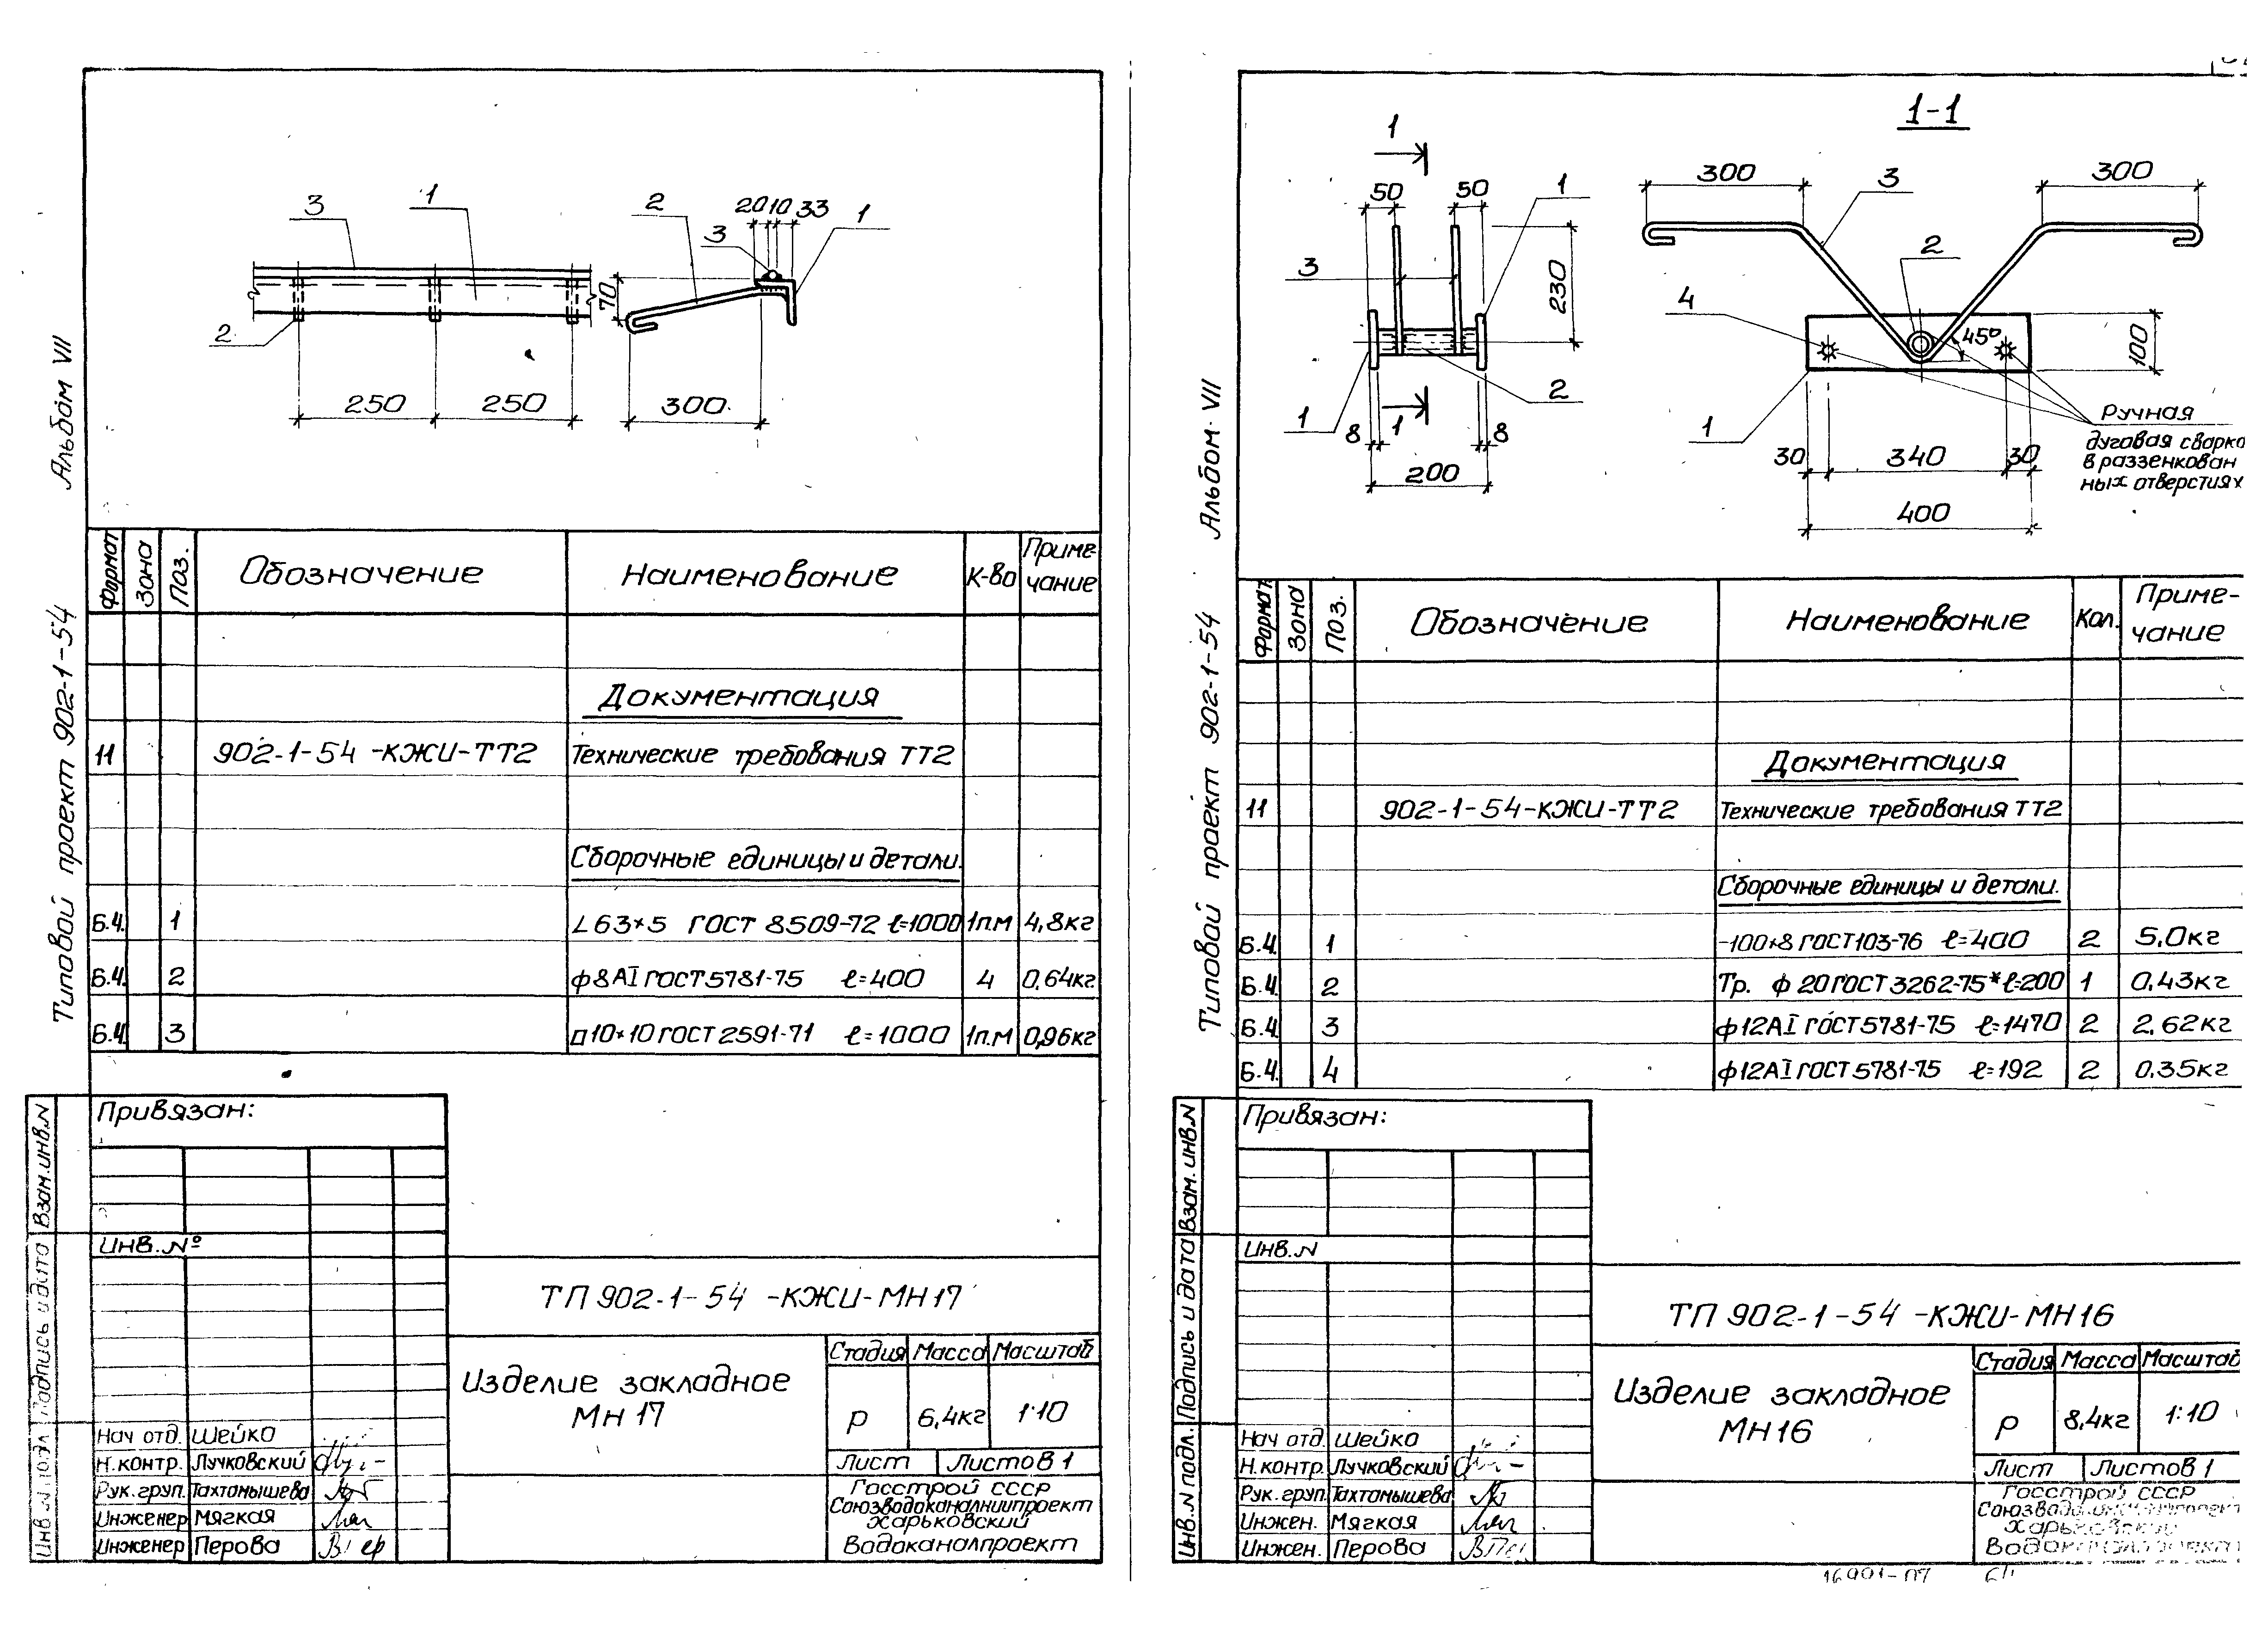 Альбом VII
Типовой проект 902-1-54
3
1
2
250
250
2
3
20 10 33
1
70
300
Формат
Зона
Поз.
Обозначение
Наименование
К-во
Приме-
чание
Документация
11 902-1-54-КЖИ-ТТ2 Технические требования ТТ2
Сборочные единицы и детали.
Б.Ч. 1 L63×5 ГОСТ 8509-72 ℓ=1000 1п.м 4,8кг
Б.Ч. 2 ф8АI ГОСТ5781-75 ℓ=400 4 0,64кг
Б.Ч. 3 п10×10 ГОСТ2591-71 ℓ=1000 1п.м 0,96кг
Привязан:
Инв.№
Взам.инв.N
Подпись и дата
Инв.N подл.
ТП 902-1-54-КЖИ-МН17
Изделие закладное
МН17
Стадия Масса Масштаб
Р 6,4кг 1:10
Лист Листов 1
Нач отд. Шейко
Н.контр. Лучковский
Рук.груп. Тахтамышева
Инженер Мягкая
Инженер Перова
Госстрой СССР
Союзводоканалниипроект
Харьковский
Водоканалпроект
Альбом VII
Типовой проект 902-1-54
1
50 50
1
3
230
1
2
8 1 8
200
1-1
300
3
300
2
4
45°
100
1
Ручная
дуговая сварка
в раззенкован
ных отверстиях
30 340 30
400
Формат
Зона
Поз.
Обозначение
Наименование
Кол.
Приме-
чание
Документация
11 902-1-54-КЖИ-ТТ2 Технические требования ТТ2
Сборочные единицы и детали.
Б.Ч. 1 -100×8 ГОСТ103-76 ℓ=400 2 5,0кг
Б.Ч. 2 Тр. ф20 ГОСТ 3262-75* ℓ=200 1 0,43кг
Б.Ч. 3 ф12АI ГОСТ5781-75 ℓ=1470 2 2,62кг
Б.Ч. 4 ф12АI ГОСТ5781-75 ℓ=192 2 0,35кг
Привязан:
Инв.N
Взам.инв.N
Подпись и дата
Инв.N подл.
ТП 902-1-54-КЖИ-МН16
Изделие закладное
МН16
Стадия Масса Масштаб
Р 8,4кг 1:10
Лист Листов 1
Нач отд. Шейко
Н.контр. Лучковский
Рук.груп. Тахтамышева
Инжен. Мягкая
Инжен. Перова
Госстрой СССР
Харьковский
16901-07